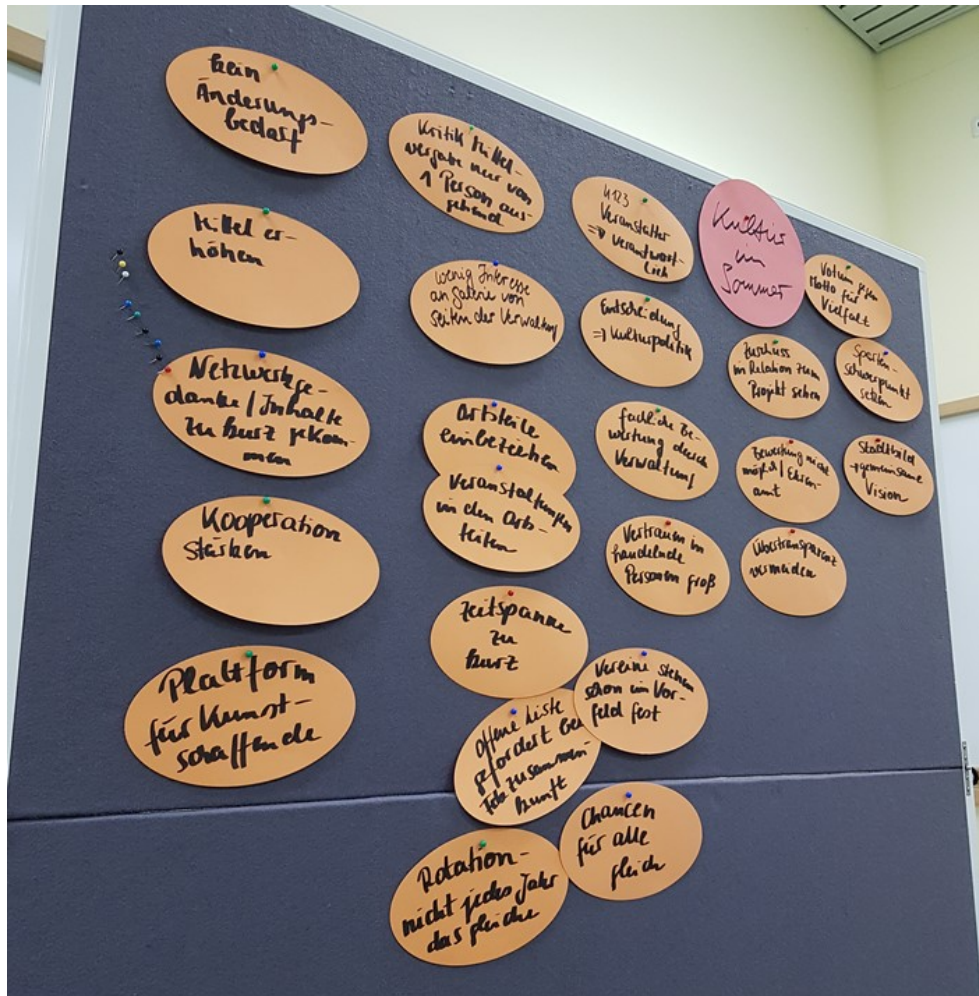 kein
Änderungs-
bedarf
Mittel er-
höhen
Netzwerkge-
danke / Inhalte
zu kurz gekom-
men
Kooperation
stärken
Plattform
für Kunst-
schaffende
Kritik Mittel-
vergabe nur von
1 Person aus-
gehend
wenig Interesse
an Galerie von
seiten der Verwaltung
Ortsteile
einbeziehen
Veranstaltungen
in den Orts-
teilen
Zeitspanne
zu
kurz
offene Liste
gefordert bei
Feb zusammen-
kunft
Rotation-
nicht jedes Jahr
das gleiche
4123
Veranstalter
=> verantwort-
lich
Entscheidung
=> Kulturpolitik
fachliche Be-
wertung durch
Verwaltung
Vertrauen in
handelnde
Personen groß
Vereine stehen
schon im Vor-
feld fest
Chancen
für alle
gleich
Kultur
im
Sommer
Zuschuss
in Relation zum
Projekt sehen
Bewertung nicht
möglich / Ehren-
amt
Übertransparenz
vermeiden
Votum gegen
Motto für
Vielfalt
Sparten-
schwerpunkt
setzen
Stadtbild
→ gemeinsame
Vision